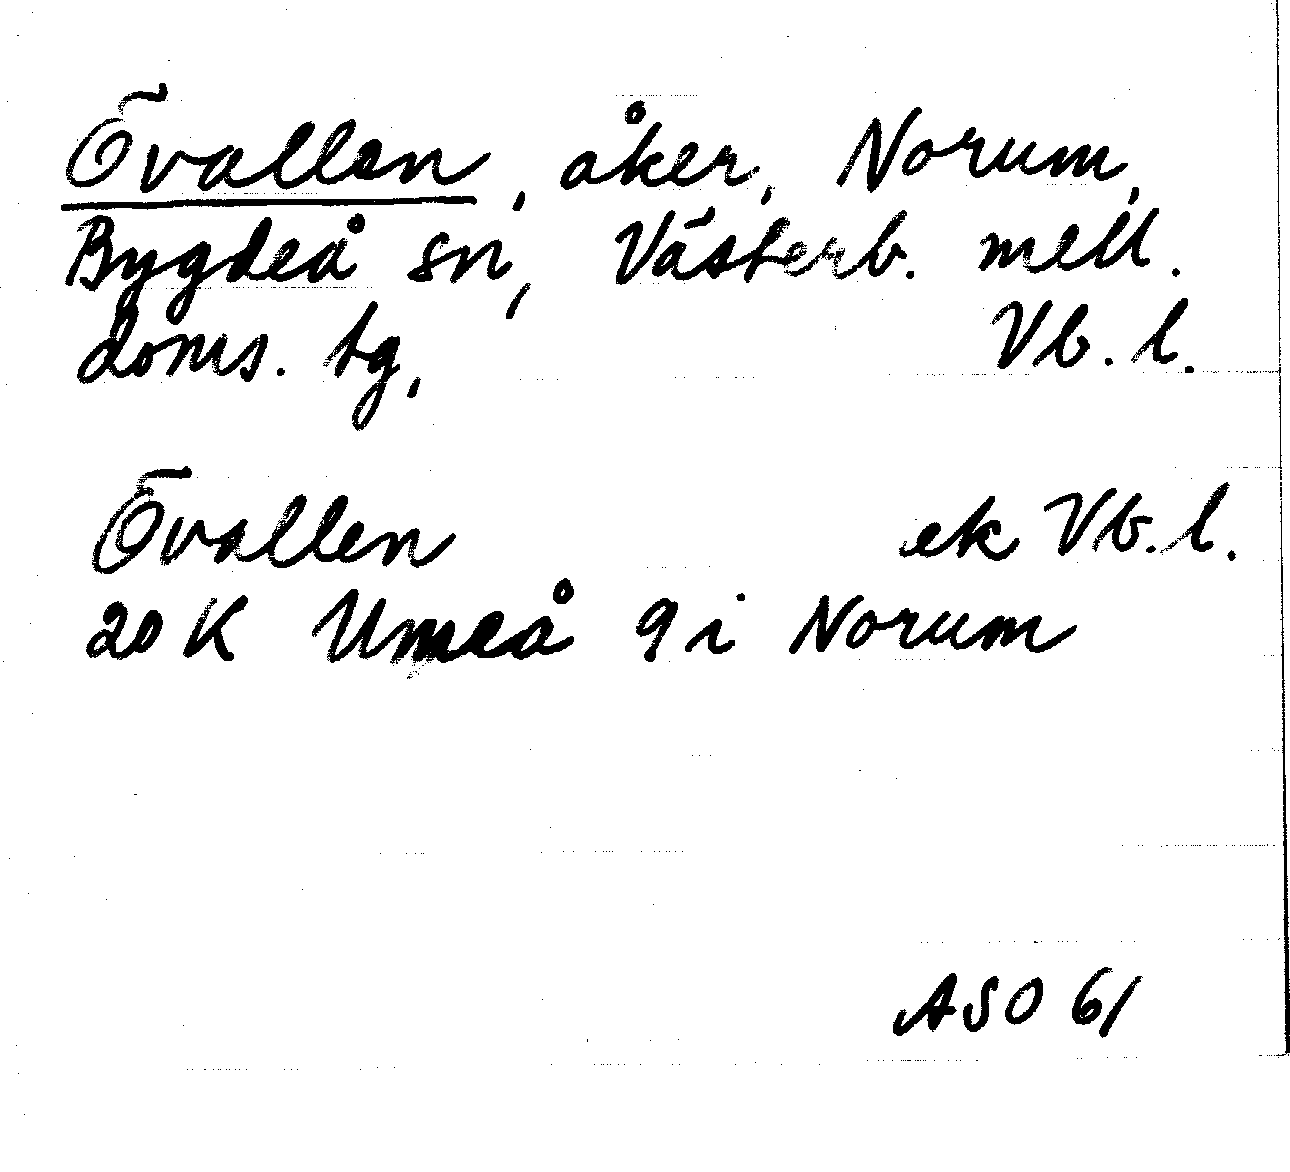 Övallen, åker, Norum,
Bygdeå sn, Västerb. mell.
doms. tg, Vb. l.
Övallen ek Vb. l.
20 K Umeå 9 i Norum
ASO 61